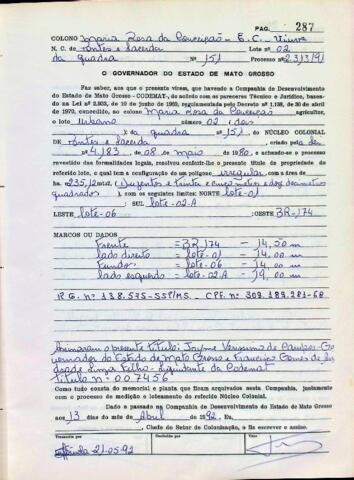 PAG. 287
COLONO Maria Rosa da Conceição - E.C. Viuva
N. C. de Pontes e Lacerda Lote nº 02
da quadra Nº 151 Processo nº 2.313/91
O GOVERNADOR DO ESTADO DE MATO GROSSO
Faz saber, aos que o presente virem, que havendo a Companhia de Desenvolvimento
do Estado de Mato Grosso - CODEMAT-, de acordo com os pareceres Técnico e Jurídico, baseados
na Lei nº 2.933, de 10 de junho de 1969, regulamentada pelo Decreto nº 1.138, de 30 de abril
de 1970, concedido ao colono Maria Rosa da Conceição agricultor,
o lote urbano número 02 (dois
) da quadra nº 151. NÚCLEO COLONIAL
DE Pontes e Lacerda, criado pela Lei
nº 4.183, de 08 de maio de 1980, e achando-se o processo
revestido das formalidades legais, resolveu conferir-lhe o presente título de propriedade do
referido lote, o qual tem a configuração de um polígono irregular, com a área de
ha. 235,12mts2. (Duzentos e trinta e cinco metros e doze decimetros
quadrados) e os seguintes limites: NORTE lote-01
SUL lote-02-A
LESTE lote-06 :OESTE BR-174
MARCOS OU DADOS
Frente = BR,174 - 14,50 m
lado direito = lote-01 - 14,00 m
Fundos = lote-06 - 14,00 m
lado esquerdo = lote-02.A - 19,00 m
R.G. nº 138.575-SSP/MS. - CPF. nº 309.189.281-68
Assinaram o presente título: Jayme Verissimo de Campos - Go-
vernador do Estado de Mato Grosso e Francisco Gomes de
Lima Filho - Liquidante da Codemat
Título nº 007456
Como tudo consta do memorial e planta que ficam arquivados nesta Companhia, juntamente
com o processo de medição e loteamento do referido Núcleo Colonial.
Dado e passado na Companhia de Desenvolvimento do Estado de Mato Grosso
aos 13 dias do mês de Abril de 1992. Eu,
, Chefe do Setor de Colonização, o fiz escrever e assino.
Transcrito por
Conferido por
Visto
21-05-92